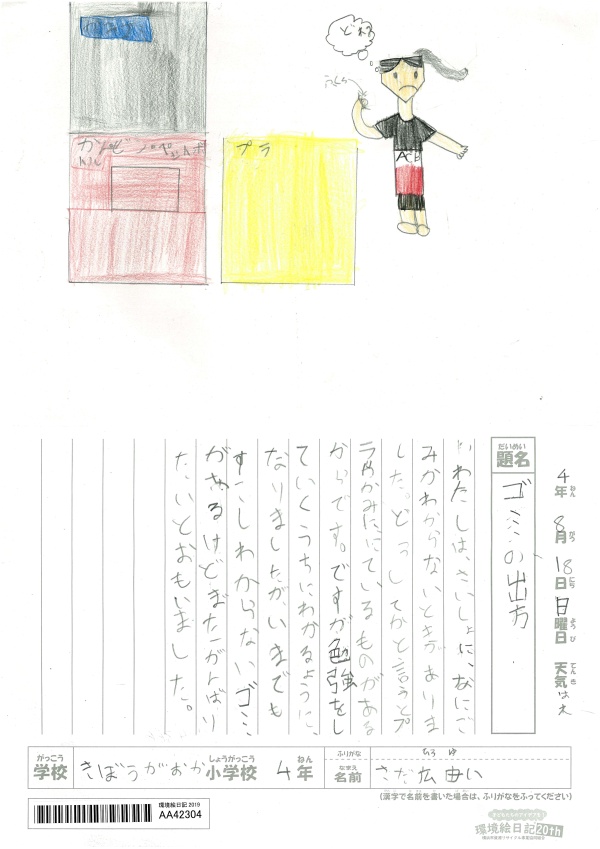 どれ?
カン ビン ペットボ
トル
プラ
ACB
4年 8月 18日 日曜日 天気はれ
ねん がつ にち ようび てんき
だいめい
題名
ゴミの出方
わたしは、さいしょに、なにご
みかわからないときがありま
した。どうしてかと言うとプ
ラやかみににているものがある
からです。ですが勉強をし
ていくうちにわかるように、
なりましたが、いまでも
すこしわからないゴミ
があるけどまたがんばり
たいとおもいました。
がっこう
学校
きぼうがおか
しょうがっこう
小学校
4年
ねん
ふりがな
ひろ ゆ
なまえ
名前
さだ広由い
(漢字で名前を書いた場合は、ふりがなをふってください)
環境絵日記 2019
AA42304
環境絵日記20th